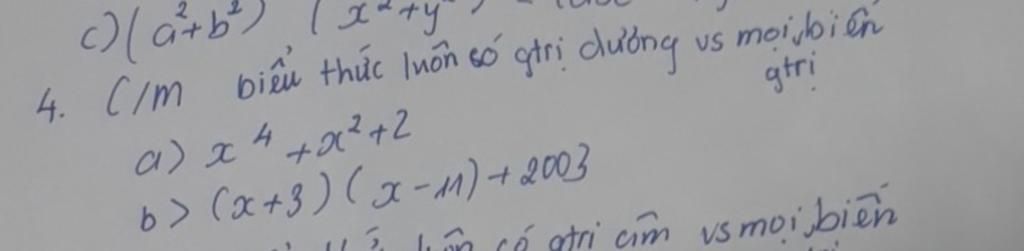 c) (a²+b²) (x²+y²)
4. C/m biểu thức luôn có gtrị dương vs mọi biến
gtrị
a) x⁴ + x² + 2
b> (x+3)(x-11)+2003
có gtri âm vs mọi biến